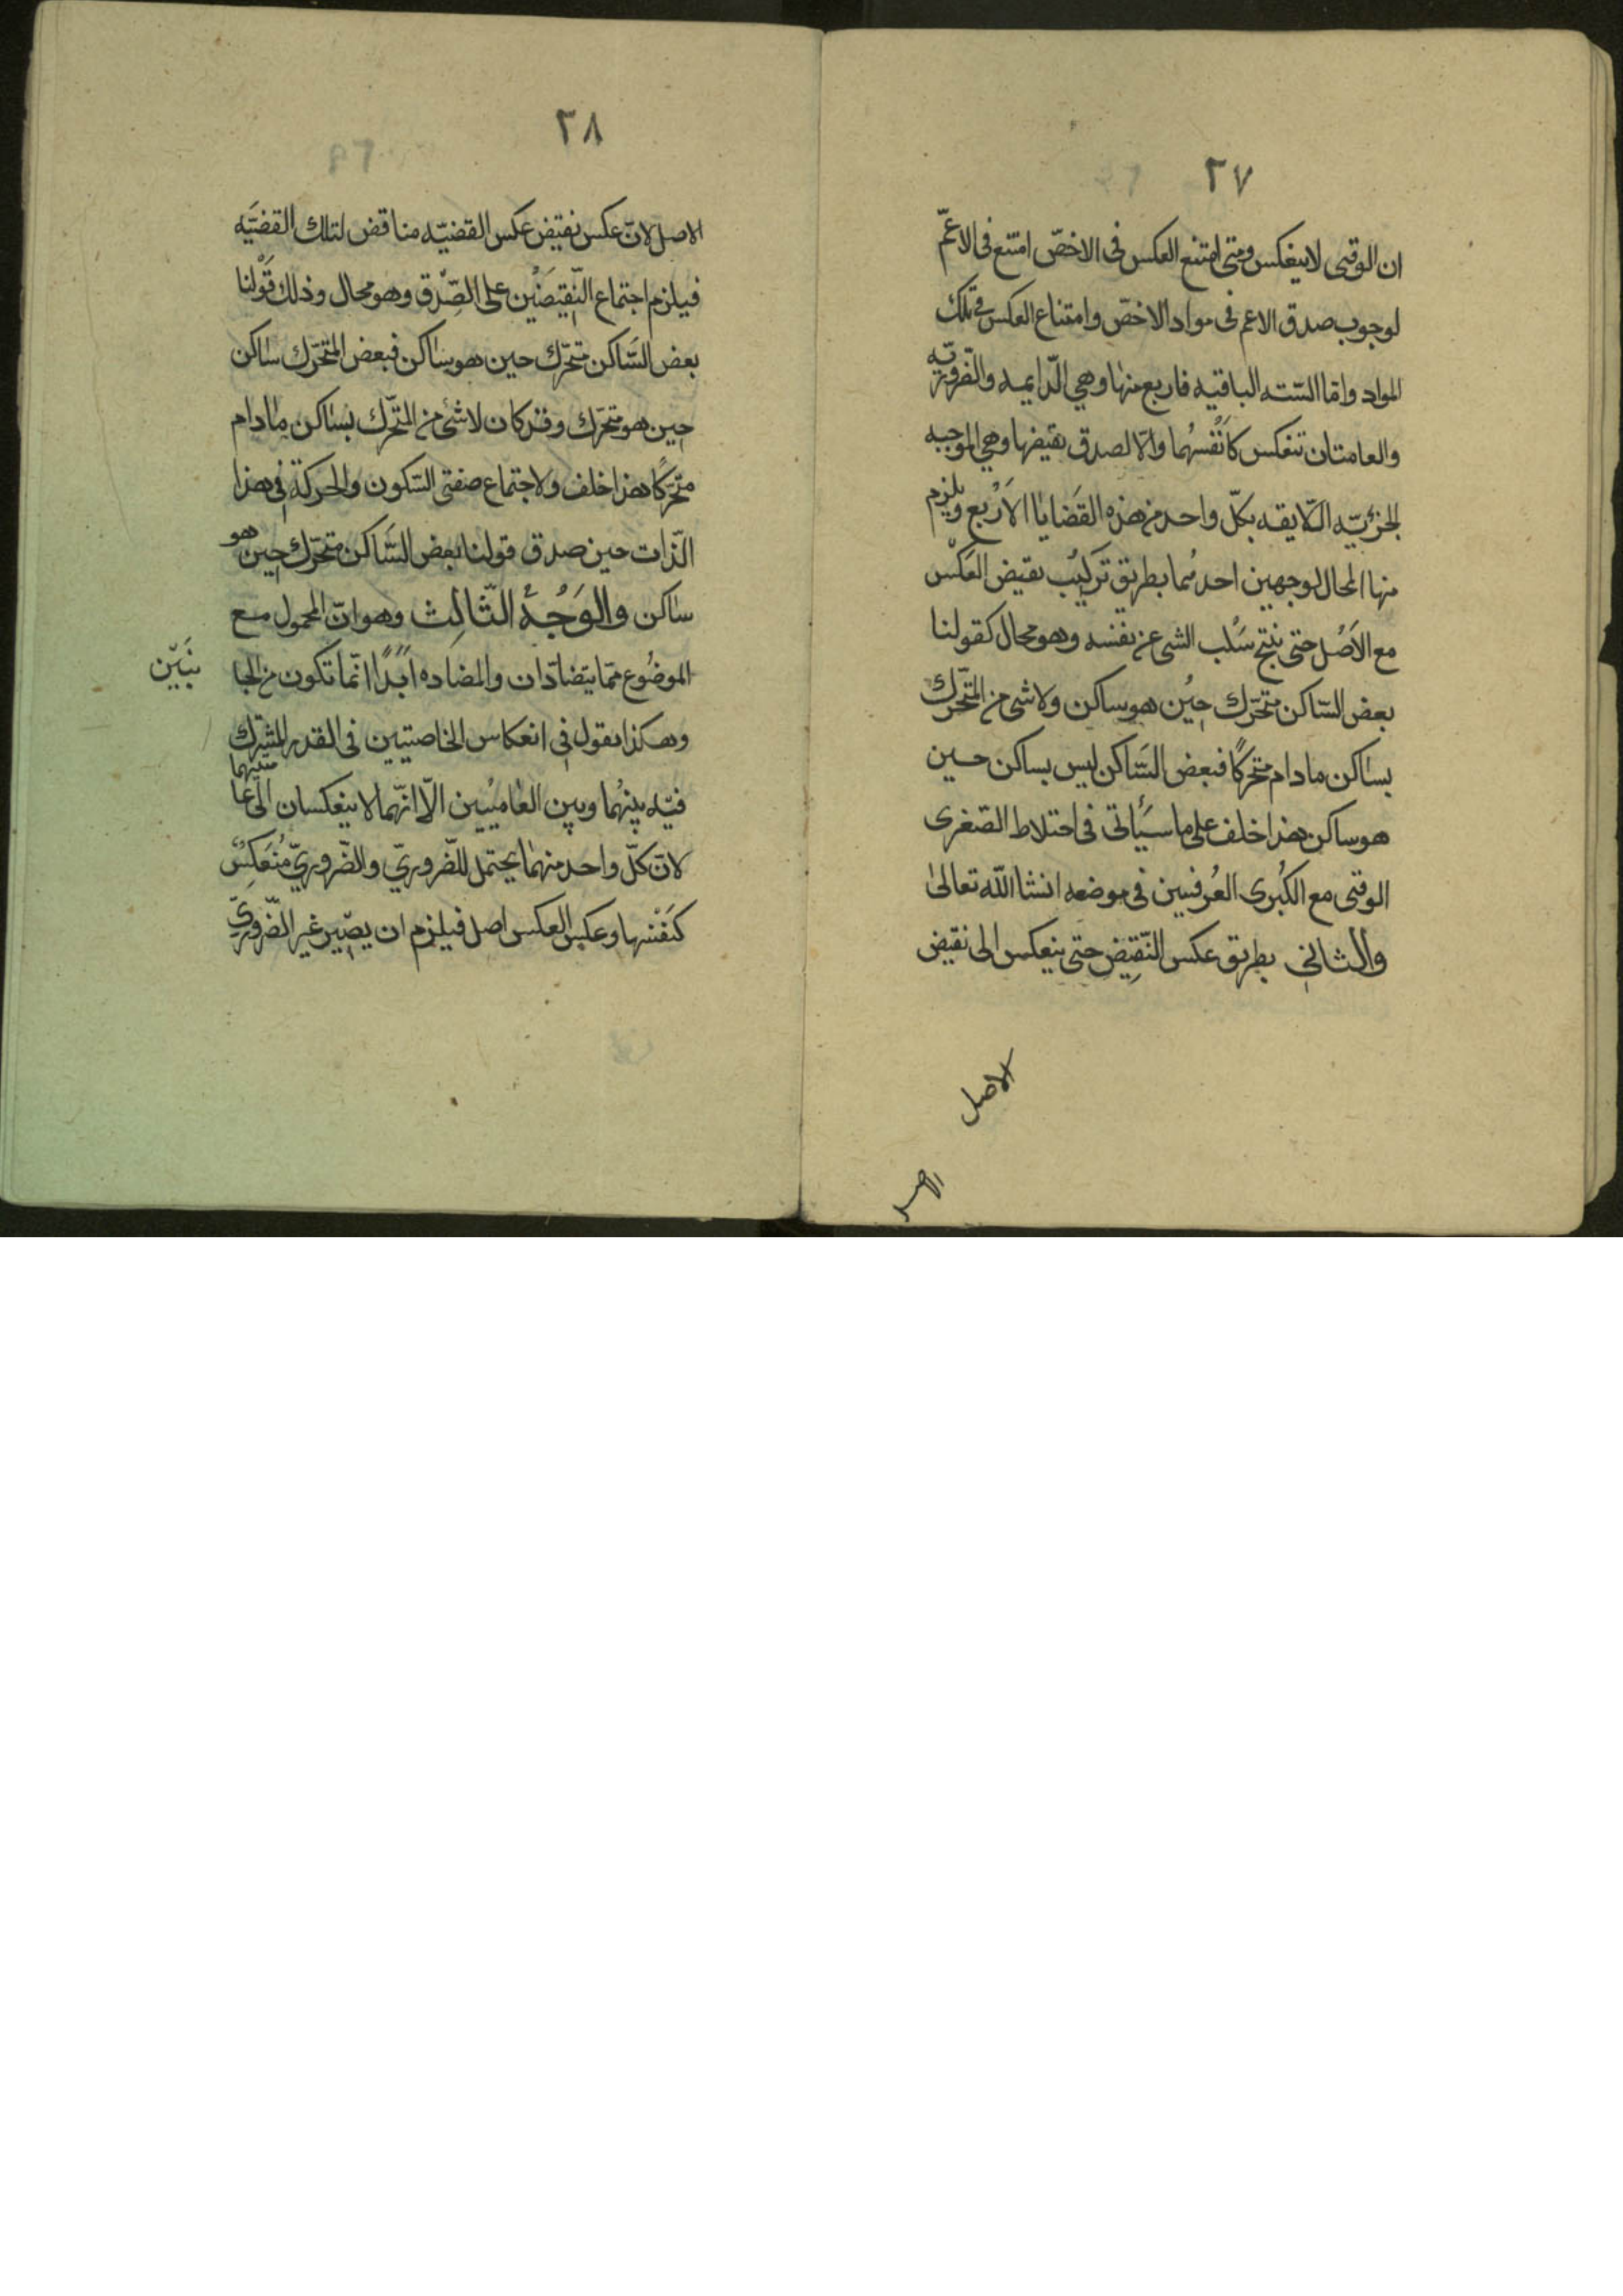 ٢٧
ان الوقتى لاينعكس ومتى امتنع العكس فى الاخصّ امتنع فى الاعمّ
لوجوب صدق الاعم فى مواد الاخصّ وامتناع العكس فى تلك
المواد واما الستـه الباقيه فاربع منها وهي الدّايمه والضّروريّه
والعامتان تنعكس كانْفسهُما والّا لصدق نقيضها وهي الموجبه
الجزئيّه الّلايقه بكلّ واحد من هذه القَضايا الاَرْبع ويلزم
منها المحال لوجهين احدهُما بطريق تَركيْب نقيض العَكْس
مع الاَصْل حتى ينتج سَلْب الشى عن نفسه وهو محال كقولنا
بعض السّاكن متحرّك حِيْن هو ساكن ولا شى من المتحّرك
بساكن مادام متحركًا فبعض السّاكن ليس بساكن حـين
هو ساكن هذا خلف على ما سيَأتى فى اختلاط الصّغرى
الوقتى مع الكُبرى العُرفيين فى موضعه انشا اللّه تعالىٰ
والثانى بطريق عكس النّقِيض حتى ينعكس الى نقيض
الاصل
٢٨
الاصل لانّ عكس نقيض عكس القضيّه مناقض لتلك القضيَّه
فيلزم اجتماع النّقِيضَيْن على الصّدق وهو محال وذلك قَوْلنا
بعض السّاكن متحّرك حين هو ساكن فبعض المتحّرك ساكن
حين هو متحّرك وقد كان لا شئ من المتحّرك بساكن مادام
متحّركًا هذا خلف ولاجتماع صفتى السّكون والحركة فى هذا
الذّات حين صدق قولنا بعض السّاكن متحّرك حين هو
ساكن والوَجْهُ الثّالِث وهو انّ المحمول مـع
الموضُوع ممّا يتضادّان والمضاده ابدًا انّما تكون من الجا
نبَيّن
وهـكذا نقول فى انعكاس الخاصيتين فى القدر المشترك
فيّه بينهُما وبين العاميّين الّا انّهما لا ينعكسان الى عا
متيهما
لانّ كلّ واحد منهما يحتمل للضّروريّ والضّروريّ مُنعَكِسٌ
كنَفْسها وعكس العكس اصل فيلزم ان يصّير غير الضّروريّ